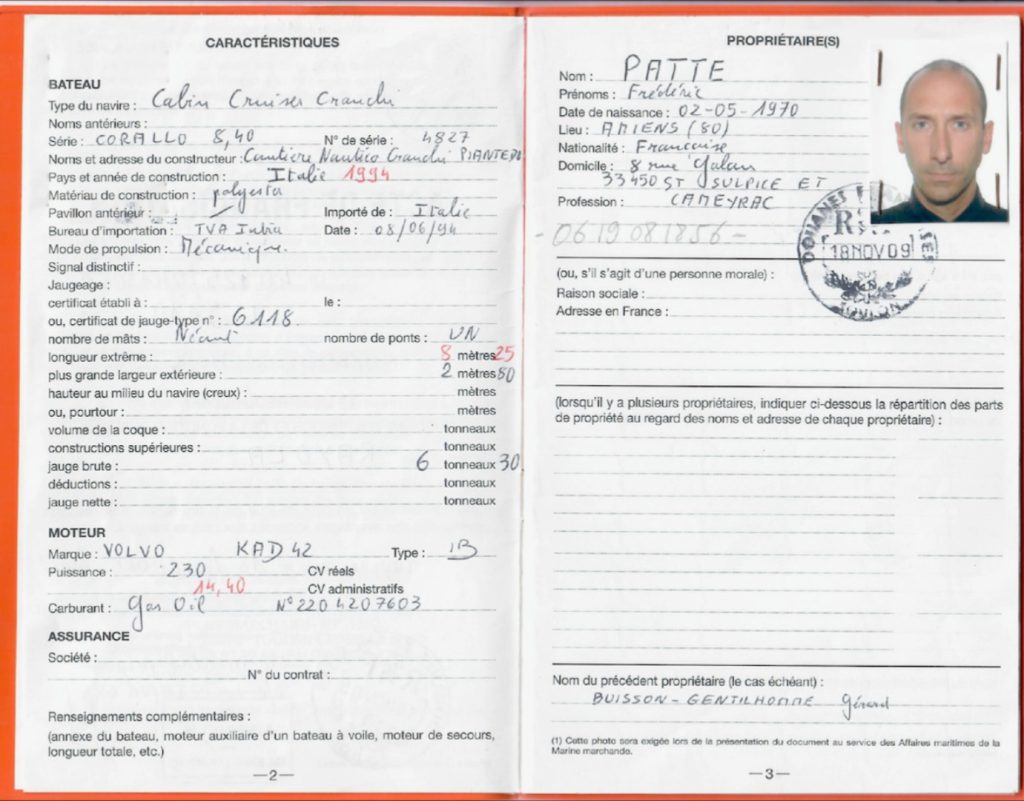 CARACTÉRISTIQUES
BATEAU
Type du navire : Cabin Cruiser Cranchi
Noms antérieurs :
Série : CORALLO 8,40 N° de série : 4827
Noms et adresse du constructeur : Cantiere Nautico Cranchi PIANTEDO
Pays et année de construction : Italie 1994
Matériau de construction : polyester
Pavillon antérieur : Importé de : Italie
Bureau d'importation : TVA Intra Date : 08/06/94
Mode de propulsion : Mécanique.
Signal distinctif :
Jaugeage :
certificat établi à : le :
ou, certificat de jauge-type n° : 6118.
nombre de mâts : Néant nombre de ponts : UN
longueur extrême : 8 mètres 25
plus grande largeur extérieure : 2 mètres 80
hauteur au milieu du navire (creux) : mètres
ou, pourtour : mètres
volume de la coque : tonneaux
constructions supérieures : tonneaux
jauge brute : 6 tonneaux 30
déductions : tonneaux
jauge nette : tonneaux
MOTEUR
Marque : VOLVO KAD 42 Type : IB
Puissance : 230 CV réels
14,40 CV administratifs
Carburant : Gas Oil N° 220 4207603
ASSURANCE
Société :
N° du contrat :
Renseignements complémentaires :
(annexe du bateau, moteur auxiliaire d'un bateau à voile, moteur de secours,
longueur totale, etc.)
—2—
PROPRIÉTAIRE(S)
Nom : PATTE
Prénoms : Frédéric
Date de naissance : 02-05-1970
Lieu : AMIENS (80)
Nationalité : Française
Domicile : 8 rue Galan
33450 ST SULPICE ET
Profession : CAMEYRAC
- 06 19 08 18 56 -
DOUANES
18 NOV 09
TOULON
(ou, s'il s'agit d'une personne morale) :
Raison sociale :
Adresse en France :
(lorsqu'il y a plusieurs propriétaires, indiquer ci-dessous la répartition des parts
de propriété au regard des noms et adresse de chaque propriétaire) :
Nom du précédent propriétaire (le cas échéant) :
BUISSON-GENTILHOMME Gérard
(1) Cette photo sera exigée lors de la présentation du document au service des Affaires maritimes de la
Marine marchande.
—3—